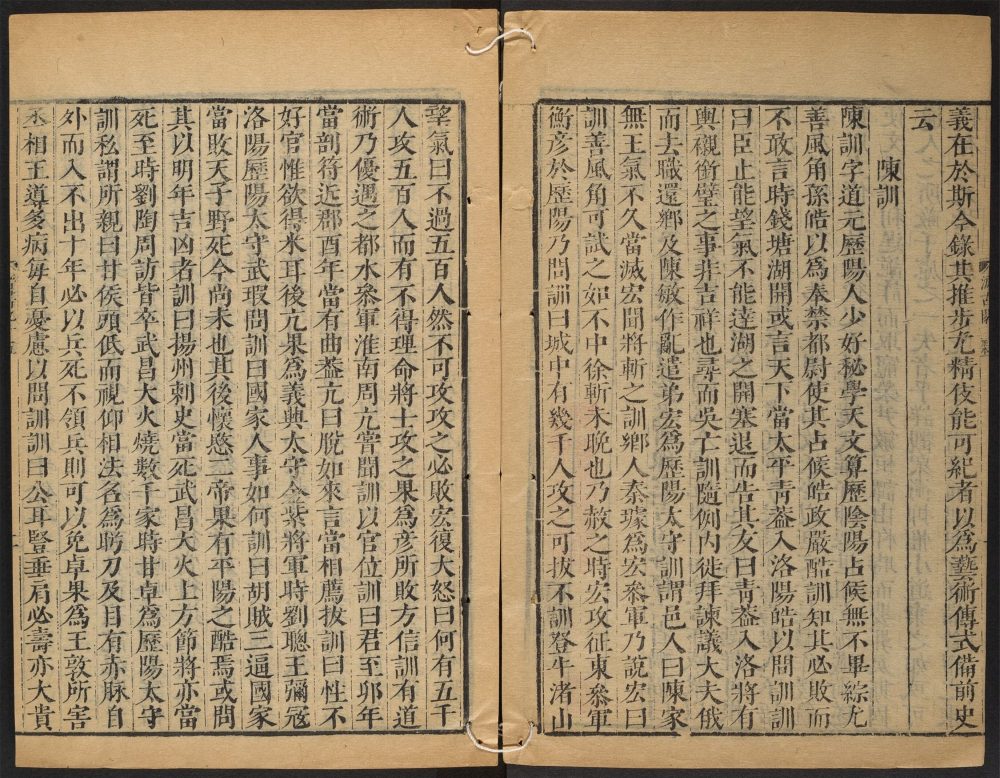 義在於斯今錄其推步尤精伎能可紀者以爲藝術傳式備前史
云
陳訓
陳訓字道元歷陽人少好秘學天文算歷陰陽占候無不畢綜尤
善風角孫皓以爲奉禁都尉使其占候皓政嚴酷訓知其必敗而
不敢言時錢塘湖開或言天下當太平青蓋入洛陽皓以問訓訓
曰臣止能望氣不能達湖之開塞退而告其友曰青蓋入洛將有
輿櫬銜璧之事非吉祥也尋而吳亡訓隨例內徙拜諫議大夫俄
而去職還鄉及陳敏作亂遣弟宏爲歷陽太守訓謂邑人曰陳家
無王氣不久當滅宏聞將斬之訓鄉人秦璩爲宏參軍乃說宏曰
訓善風角可試之如不中徐斬未晩也乃赦之時宏攻征東參軍
衡彦於歷陽乃問訓曰城中有幾千人攻之可拔不訓登牛渚山
望氣曰不過五百人然不可攻攻之必敗宏復大怒曰何有五千
人攻五百人而有不得理命將士攻之果爲彦所敗方信訓有道
術乃優遇之都水參軍淮南周亢嘗問訓以官位訓曰君至卯年
當剖符近郡酉年當有曲蓋亢曰脫如來言當相薦拔訓曰性不
好官惟欲得米耳後亢果爲義興太守金紫將軍時劉聰王彌冦
洛陽歷陽太守武瑕問訓曰國家人事如何訓曰胡賊三逼國家
當敗天子野死今尚未也其後懷愍二帝果有平陽之酷焉或問
其以明年吉凶者訓曰揚州刺史當死武昌大火上方節將亦當
死至時劉陶周訪皆卒武昌大火燒數千家時甘卓爲歷陽太守
訓私謂所親曰甘侯頭低而視仰相法名爲眄刀及目有赤脉自
外而入不出十年必以兵死不領兵則可以免卓果爲王敦所害
丞相王導多病每自憂慮以問訓訓曰公耳豎垂肩必壽亦大貴